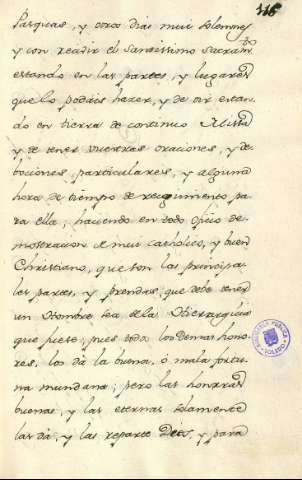 116
Pasquas, y otros dias mui solemnes
y con recivir el Santissimo Sacramto
estando en las partes, y lugares
que lo podais hacer, y de oir estan-
do en tierra de continuo Missa
y de tener vuestras oraciones, y de-
bociones particulares, y alguna
hora de tiempo de recogimiento pa-
ra ella; haciendo en todo oficio de-
mostracion de mui catholico, y buen
Christiano, que son las principa-
les partes, y prendas, que debe tener
un Hombre sea de la
que fuese; pues todos los demas hono-
res, los dà la buena, o mala fortu-
na mundana; pero las honrras
buenas, y las eternas solamente
las dà, y las reparte Dios, y para
BIBLIOTECA PUBLICA
TOLEDO